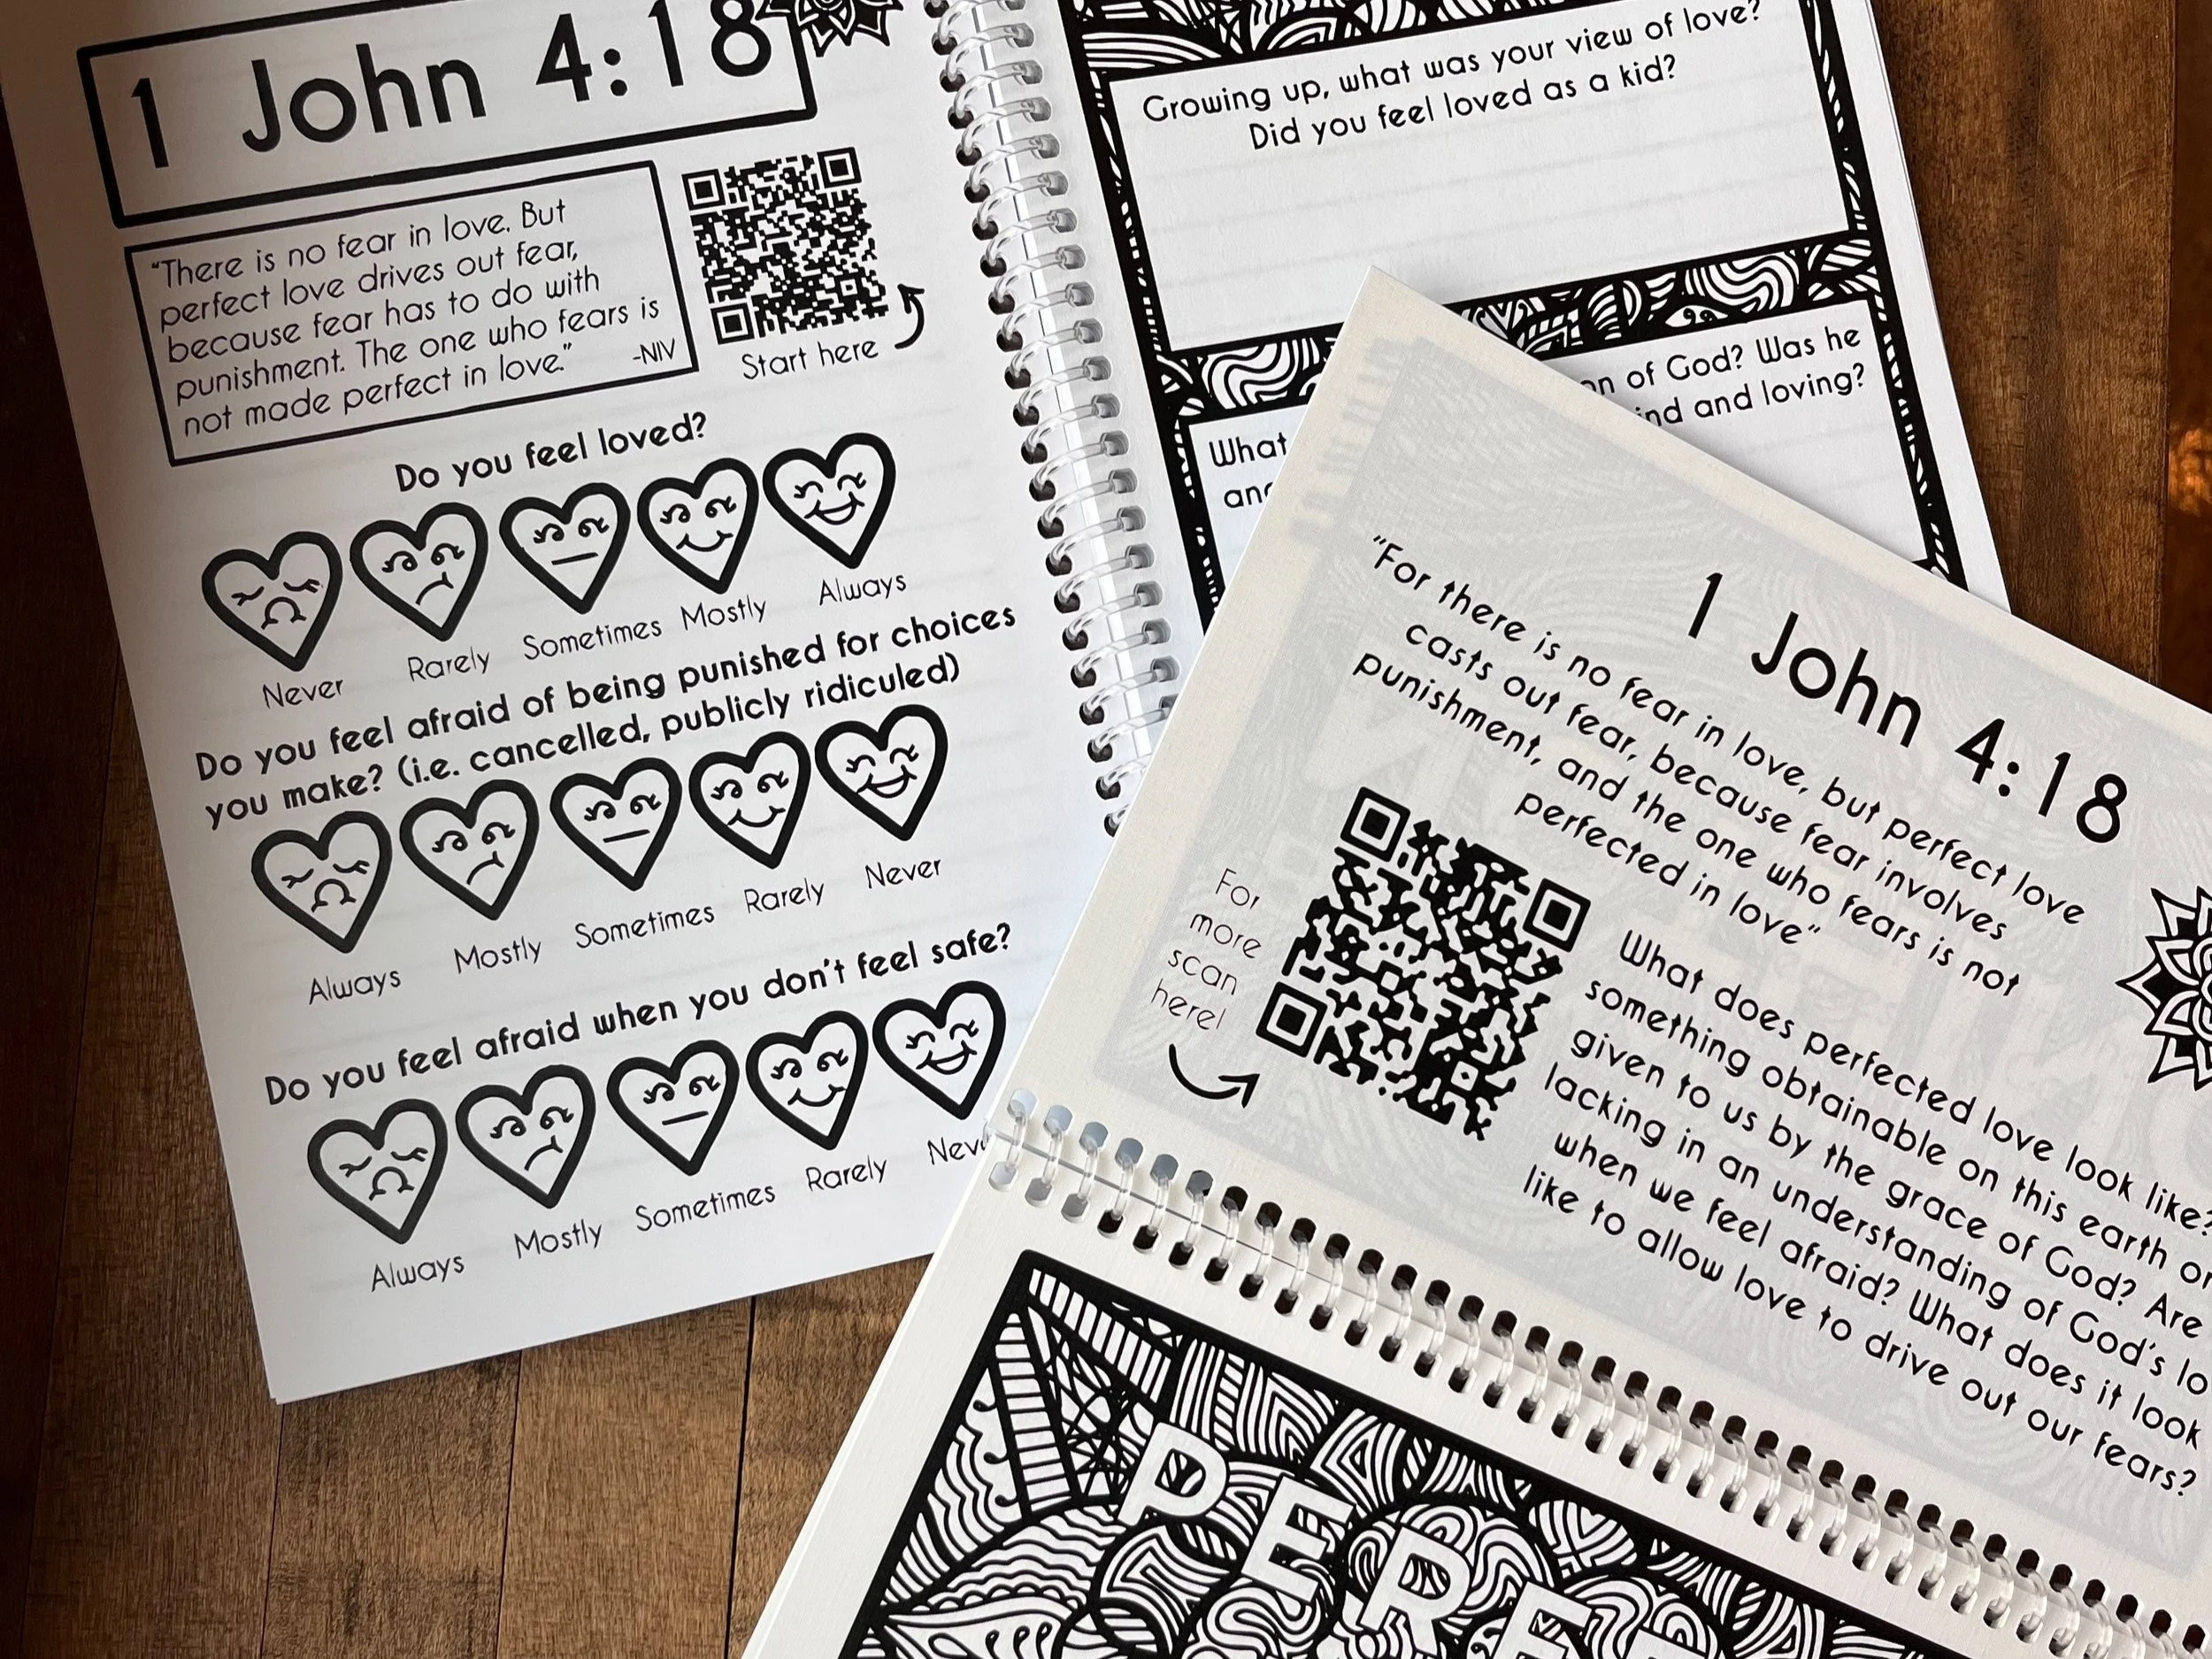 1 John 4:18
"There is no fear in love. But
perfect love drives out fear,
because fear has to do with
punishment. The one who fears is
not made perfect in love." -NIV
Start here
Do you feel loved?
Never Rarely Sometimes Mostly Always
Do you feel afraid of being punished for choices
you make? (i.e. cancelled, publicly ridiculed)
Always Mostly Sometimes Rarely Never
Do you feel afraid when you don't feel safe?
Always Mostly Sometimes Rarely
Growing up, what was your view of love?
Did you feel loved as a kid?
What of God? Was he
and loving?
1 John 4:18
"For there is no fear in love, but perfect love
casts out fear, because fear involves
punishment, and the one who fears is not
perfected in love"
For
more
scan
here!
What does perfected love look like?
something obtainable on this earth or
given to us by the grace of God? Are
lacking in an understanding of God's
when we feel afraid? What does it look
like to allow love to drive out our fears?